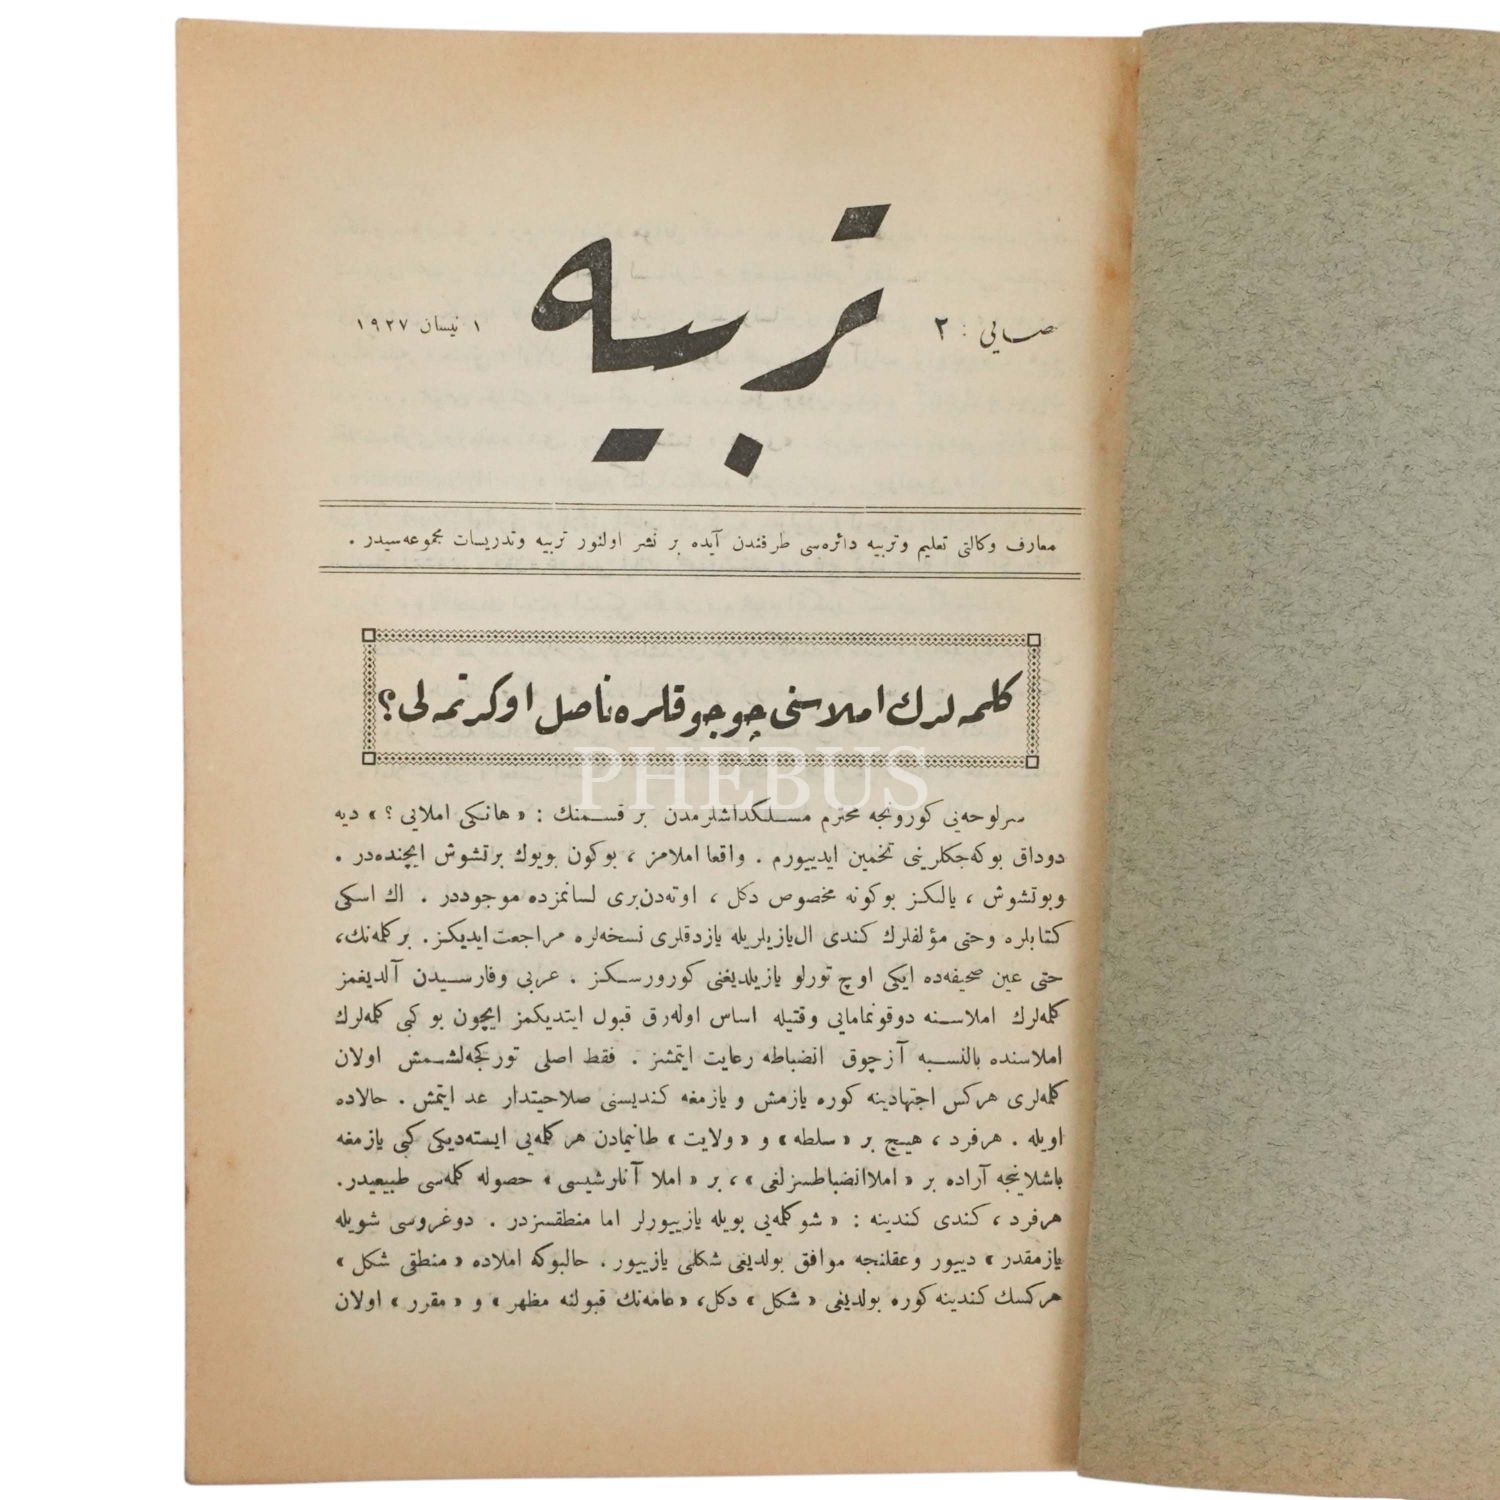 صایی : ۲
تربیه
۱ نیسان ۱۹۲۷
معارف وکالتی تعلیم وتربیه دائره‌سی طرفندن آیده بر نشر اولنور تربیه وتدریسات مجموعه‌سیدر .
كلمه‌لرك املاسنی چوجوقلره ناصل اوكرتمه‌لی؟
PHEBUS
سرلوحه‌یی كورونجه محترم مسلكداشلرمدن بر قسمنك : « هانكی املایی ؟ » دیه
دوداق بوكه‌جكلرینی تخمین ایدییورم . واقعا املامز ، بوكون بویوك برتشوش ایچنده‌در .
وبوتشوش ، یالكز بوكونه مخصوص دكل ، اوته‌دن‌بری لسانمزده موجوددر . اك اسكی
كتابلره وحتی مؤلفلرك كندی ال‌یازیلریله یازدقلری نسخه‌لره مراجعت‌ایدیكز. بركلمه‌نك،
حتی عین صحیفه‌ده ایكی اوچ تورلو یازیلدیغنی كورورسكز . عربی وفارسیدن آلدیغمز
كلمه‌لرك املاسنه دوقونمامایی وقتیله اساس اوله‌رق قبول ایتدیكمز ایچون بو كبی كلمه‌لرك
املاسنده بالنسبه آزچوق انضباطه رعایت ایتمشز . فقط اصلی توركجه‌لشمش اولان
كلمه‌لری هركس اجتهادینه كوره یازمش و یازمغه كندیسنی صلاحیتدار عد ایتمش . حالاده
اویله . هرفرد ، هیچ بر « سلطه » و « ولایت » طانیمادن هر كلمه‌یی ایسته‌دیكی كبی یازمغه
باشلاینجه آراده بر « املاانضباطسزلغی » ، بر « املا آنارشیسی » حصوله كلمه‌سی طبیعیدر.
هرفرد ، كندی كندینه : « شوكلمه‌یی بویله یازییورلر اما منطقسزدر . دوغروسی شویله
یازمقدر » دییور وعقلنجه موافق بولدیغی شكلی یازییور . حالبوكه املاده « منطقی شكل »
هركسك كندینه كوره بولدیغی « شكل » دكل، « عامه‌نك قبولنه مظهر » و « مقرر » اولان